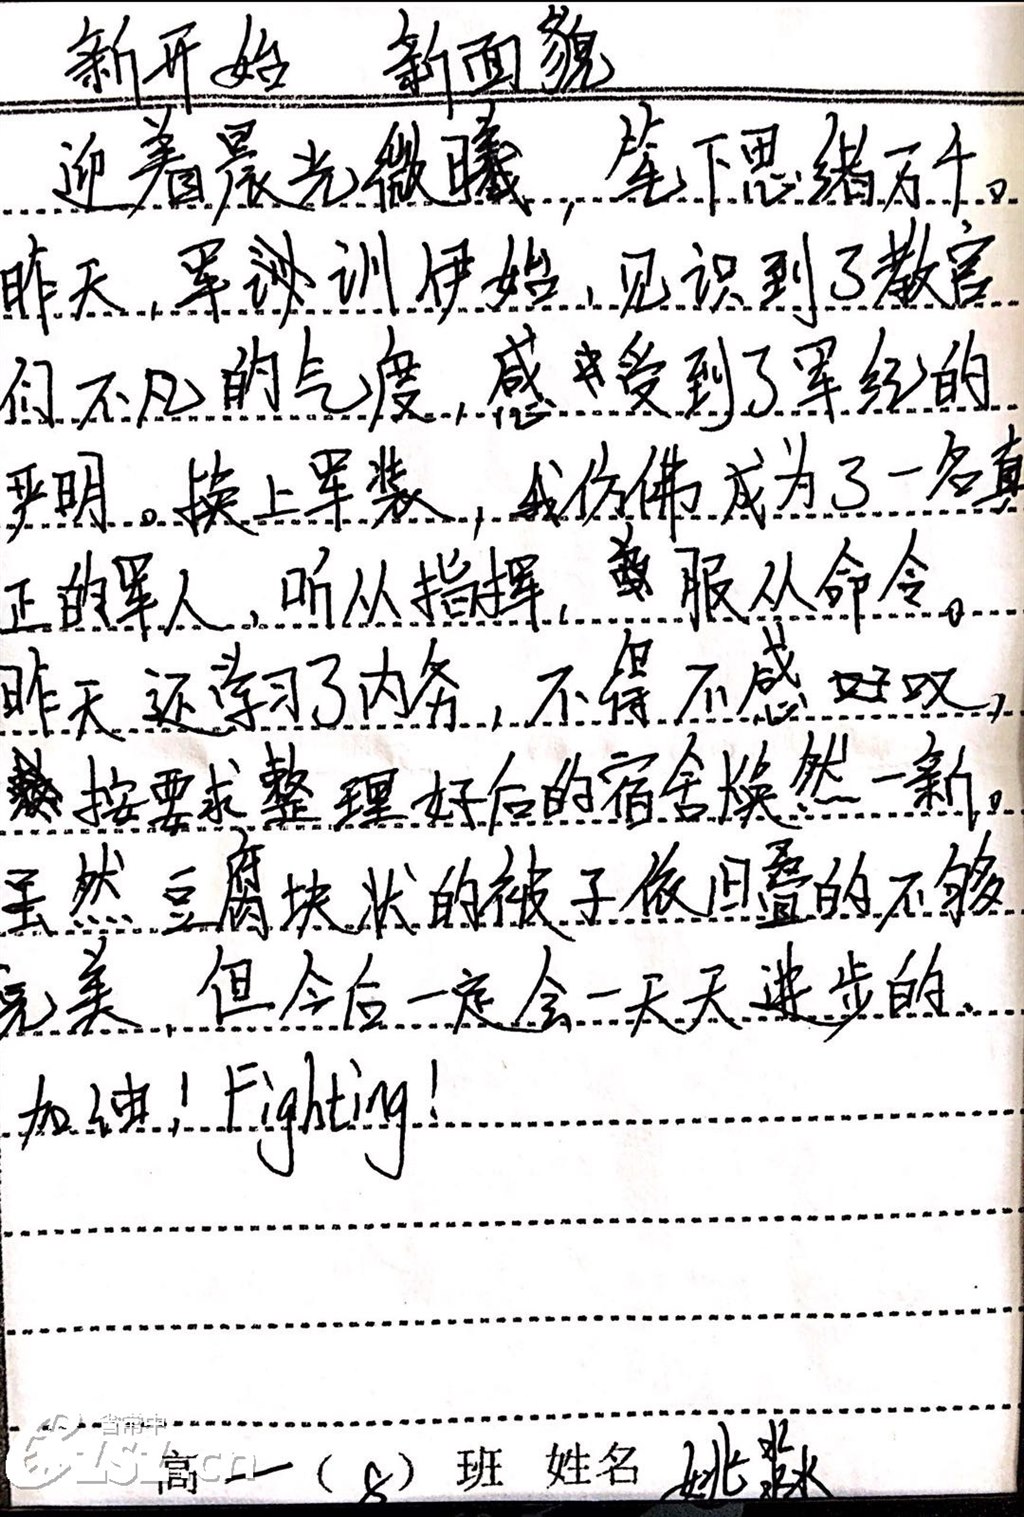 新开始 新面貌
迎着晨光微曦，笔下思绪万千。
昨天，军训伊始，见识到了教官
们不凡的气度，感受到了军纪的
严明。换上军装，我仿佛成为了一名真
正的军人，听从指挥，服从命令。
昨天还学习了内务，不得不感叹，
按要求整理好后的宿舍焕然一新。
虽然豆腐块状的被子依旧叠的不够
完美，但今后一定会一天天进步的.
加油！Fighting！
高一（8）班 姓名 姚淼
省常中